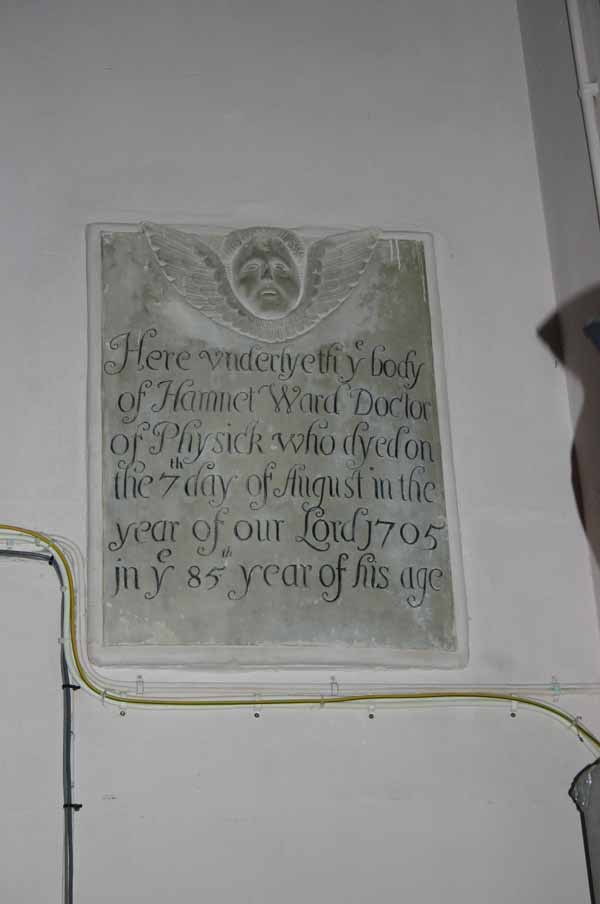 Here vnderlyeth yͤ body
of Hamnet Ward Doctor
of Physick who dyed on
the 7th day of August in the
year of our Lord 1705
jn yͤ 85th year of his age